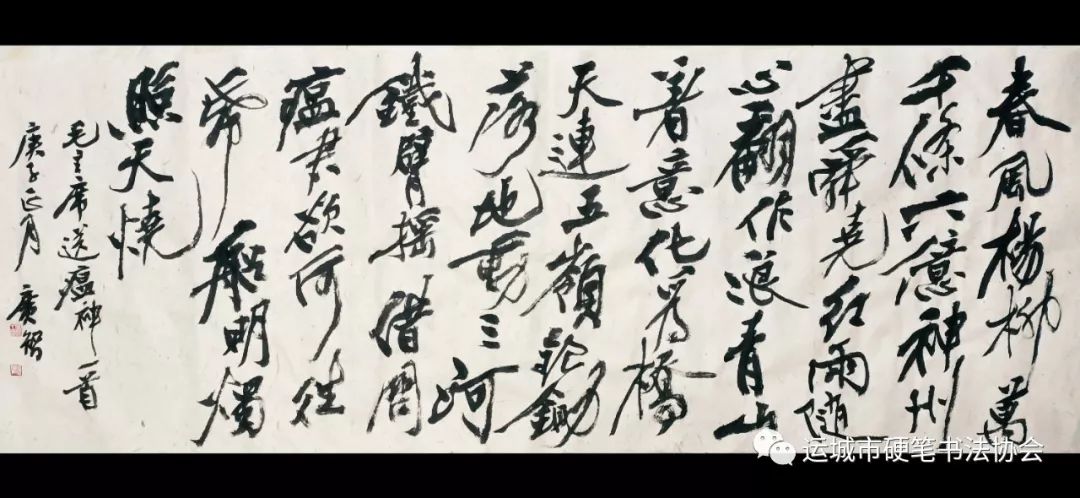 春風楊柳萬
千條六億神州
盡舜堯紅雨隨
心翻作浪青山
着意化為橋
天連五嶺銀鋤
落地動三河
鐵臂搖借問
瘟君欲何往
帋船明燭
照天燒
毛主席送瘟神一首
庚子正月
运城市硬笔书法协会